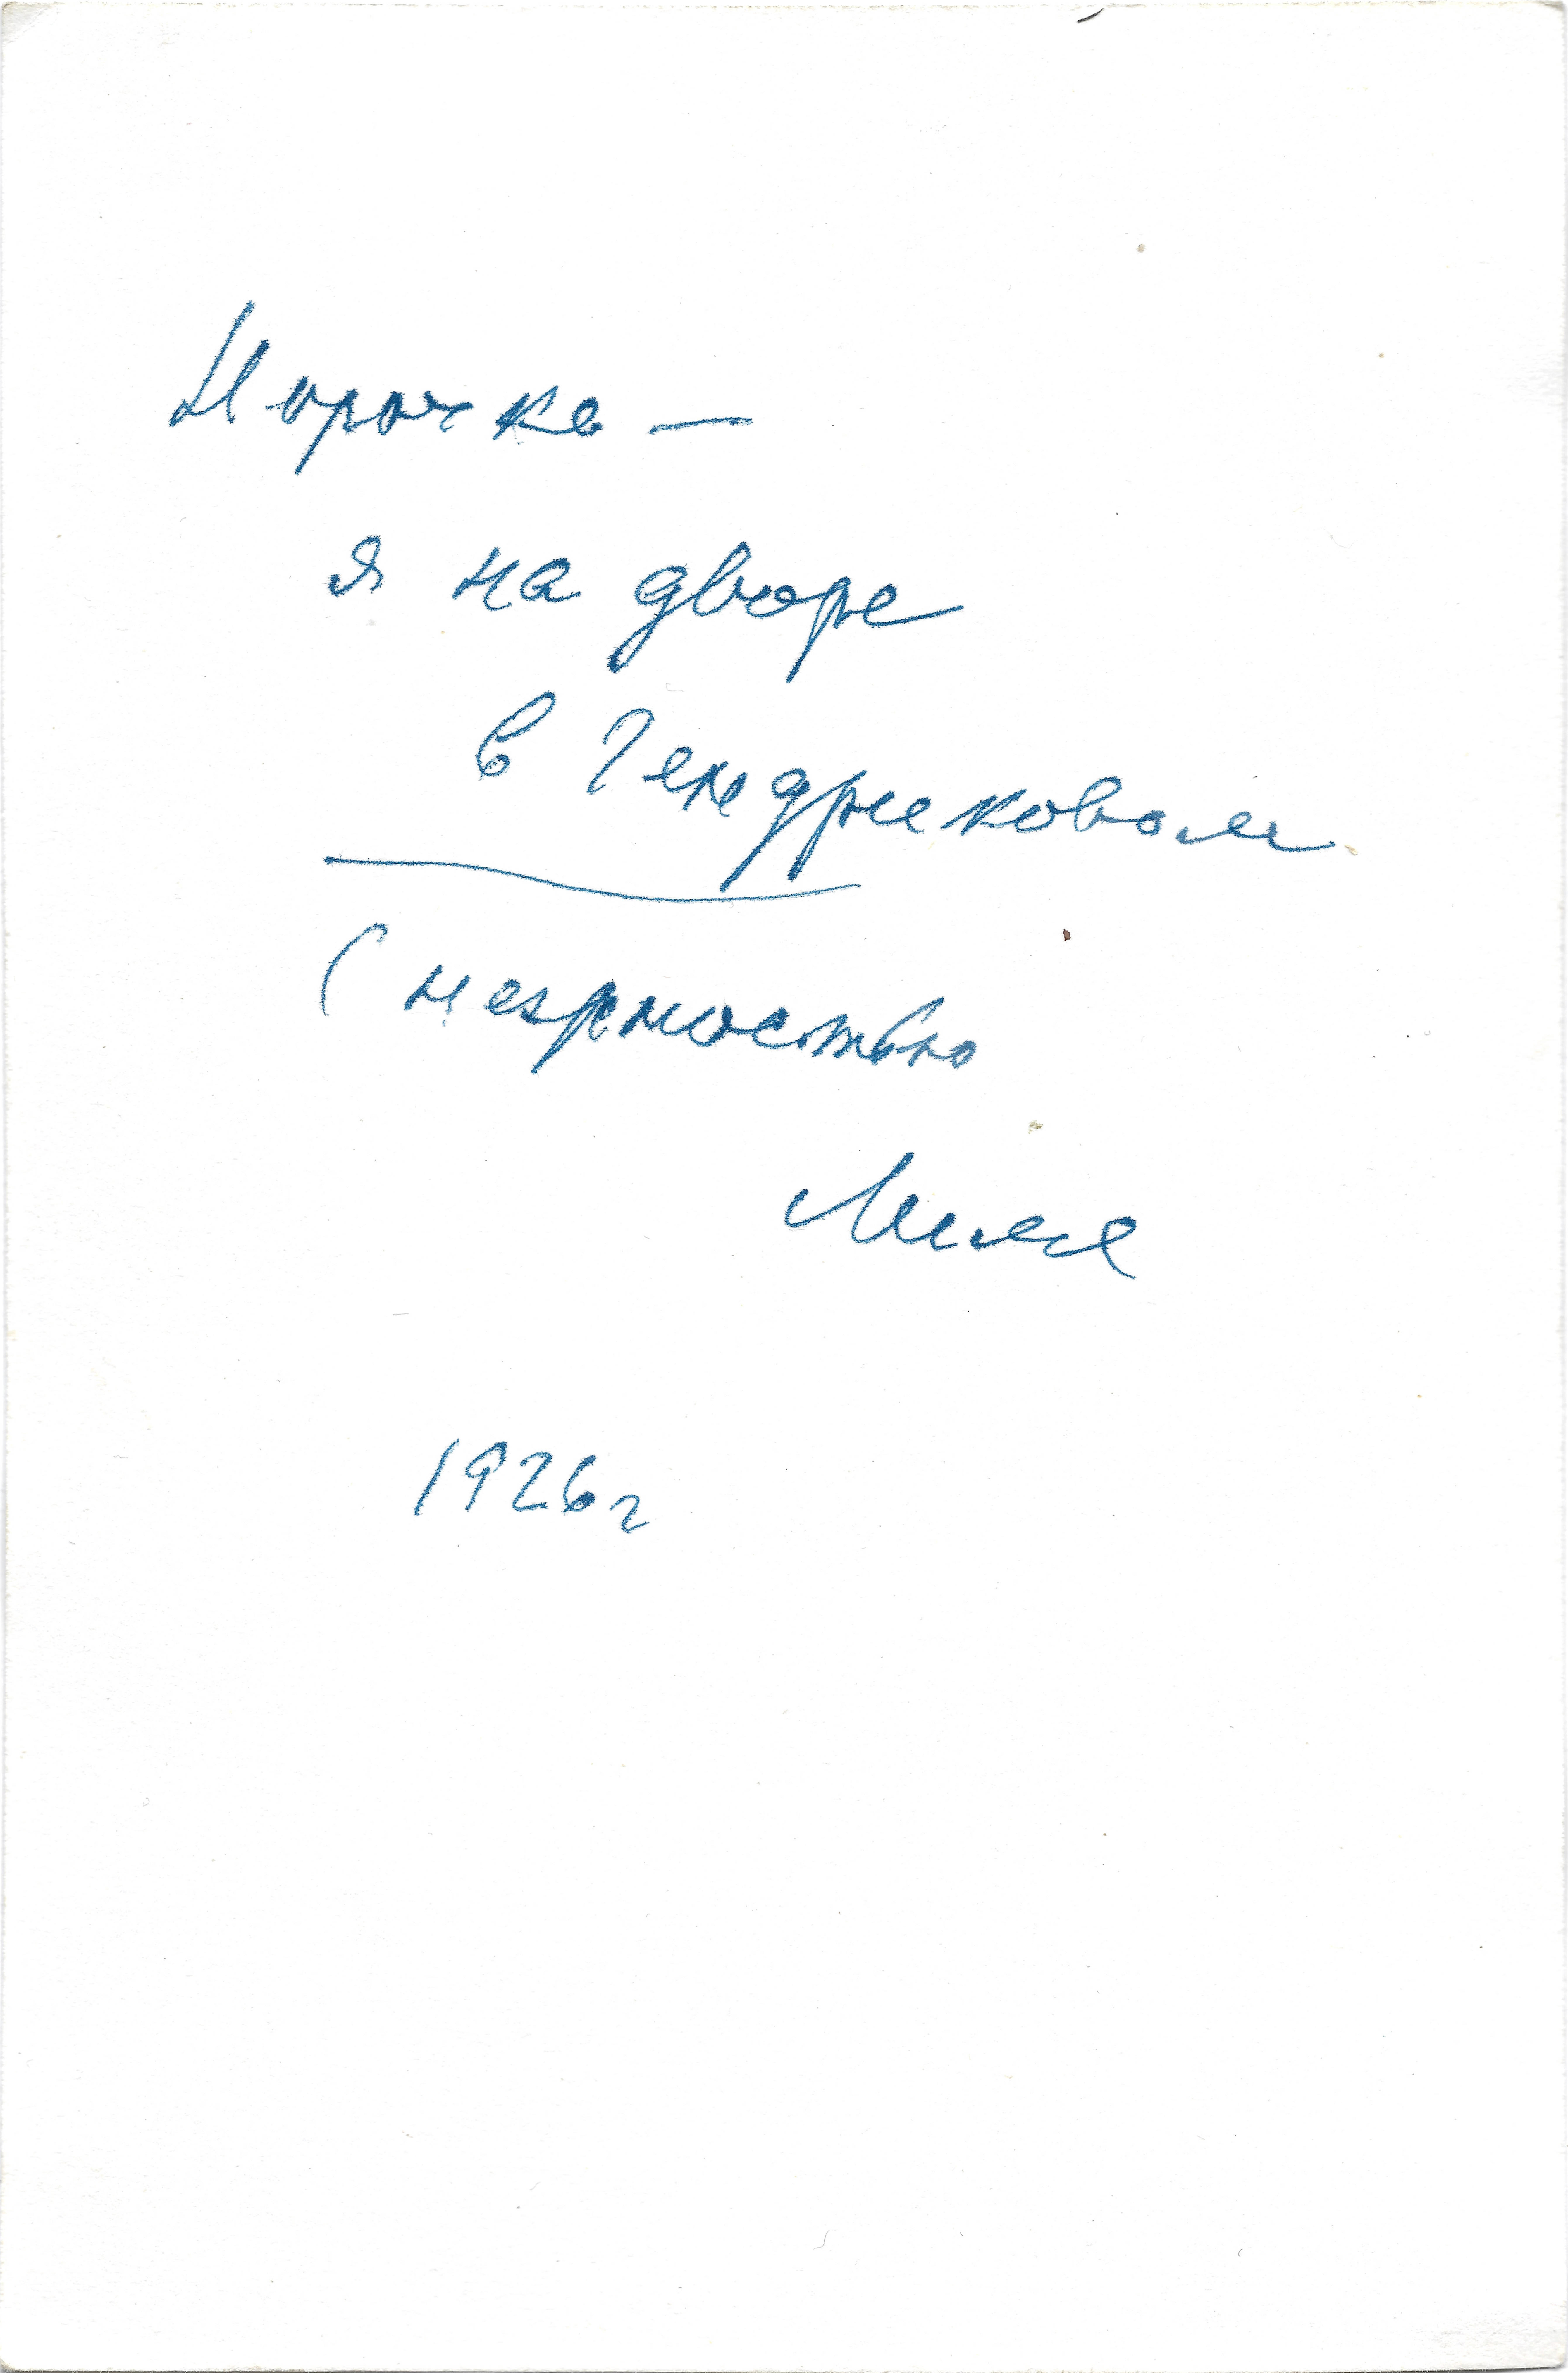 Норочке —
я на дворе
в Гендриковом
С нежностью
Лиля
1926г